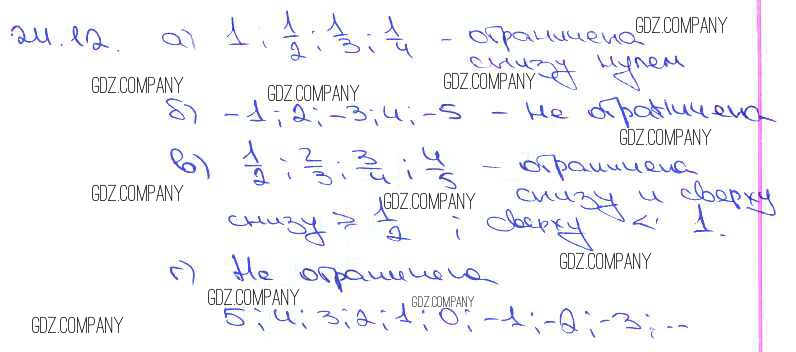 24.12. а) 1; 1/2; 1/3; 1/4 – ограничена
GDZ.COMPANY
снизу нулем
GDZ.COMPANY
GDZ.COMPANY
GDZ.COMPANY
б) -1; 2; -3; 4; -5 – не ограничена
GDZ.COMPANY
в) 1/2; 2/3; 3/4; 4/5 – ограничена
GDZ.COMPANY
GDZ.COMPANY
снизу и сверху
снизу ≥ 1/2 ; сверху < 1.
GDZ.COMPANY
г) Не ограничена
GDZ.COMPANY
GDZ.COMPANY
5; 4; 3; 2; 1; 0; -1; -2; -3; ...
GDZ.COMPANY